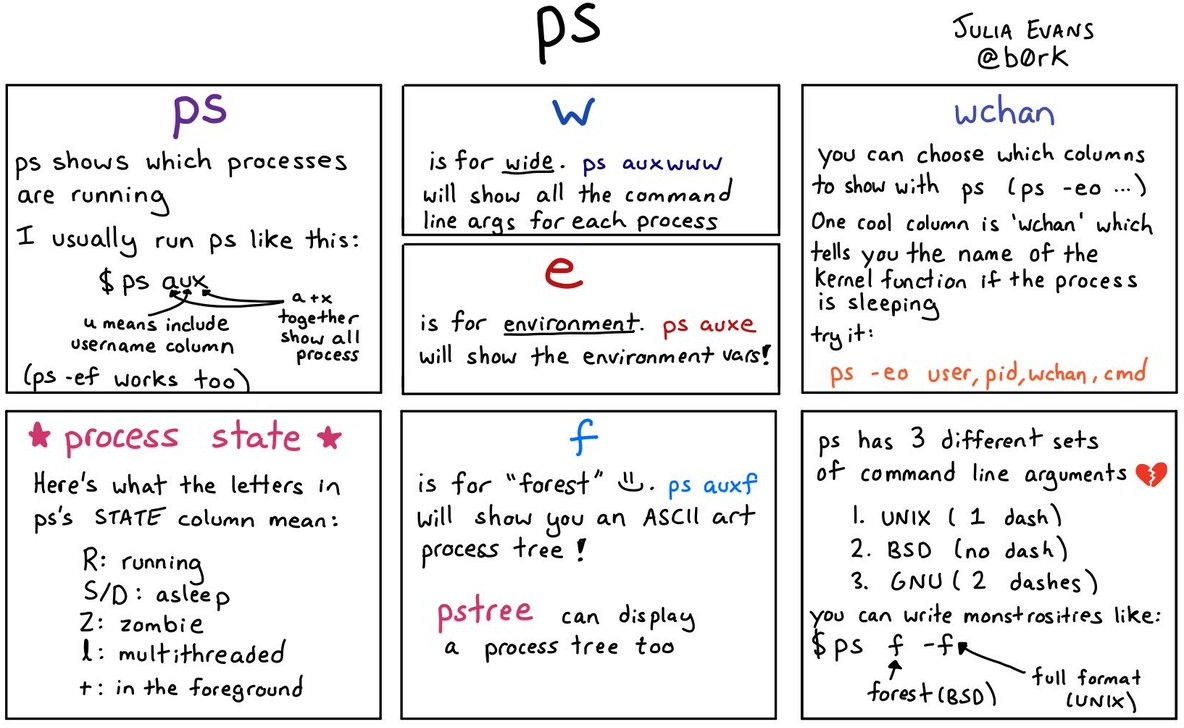 ps
JULIA EVANS
@b0rk
ps
ps shows which processes
are running
I usually run ps like this:
$ ps aux
u means include
username column
a+x
together
show all
process
(ps -ef works too)
w
is for wide. ps auxwww
will show all the command
line args for each process
e
is for environment. ps auxe
will show the environment vars!
wchan
you can choose which columns
to show with ps (ps -eo ...)
One cool column is 'wchan' which
tells you the name of the
kernel function if the process
is sleeping
try it:
ps -eo user,pid,wchan,cmd
★ process state ★
Here's what the letters in
ps's STATE column mean:
R: running
S/D: asleep
Z: zombie
l: multithreaded
+: in the foreground
f
is for "forest" . ps auxf
will show you an ASCII art
process tree!
pstree can display
a process tree too
ps has 3 different sets
of command line arguments 💔
1. UNIX (1 dash)
2. BSD (no dash)
3. GNU (2 dashes)
you can write monstrositres like:
$ ps f -f
forest (BSD)
full format
(UNIX)